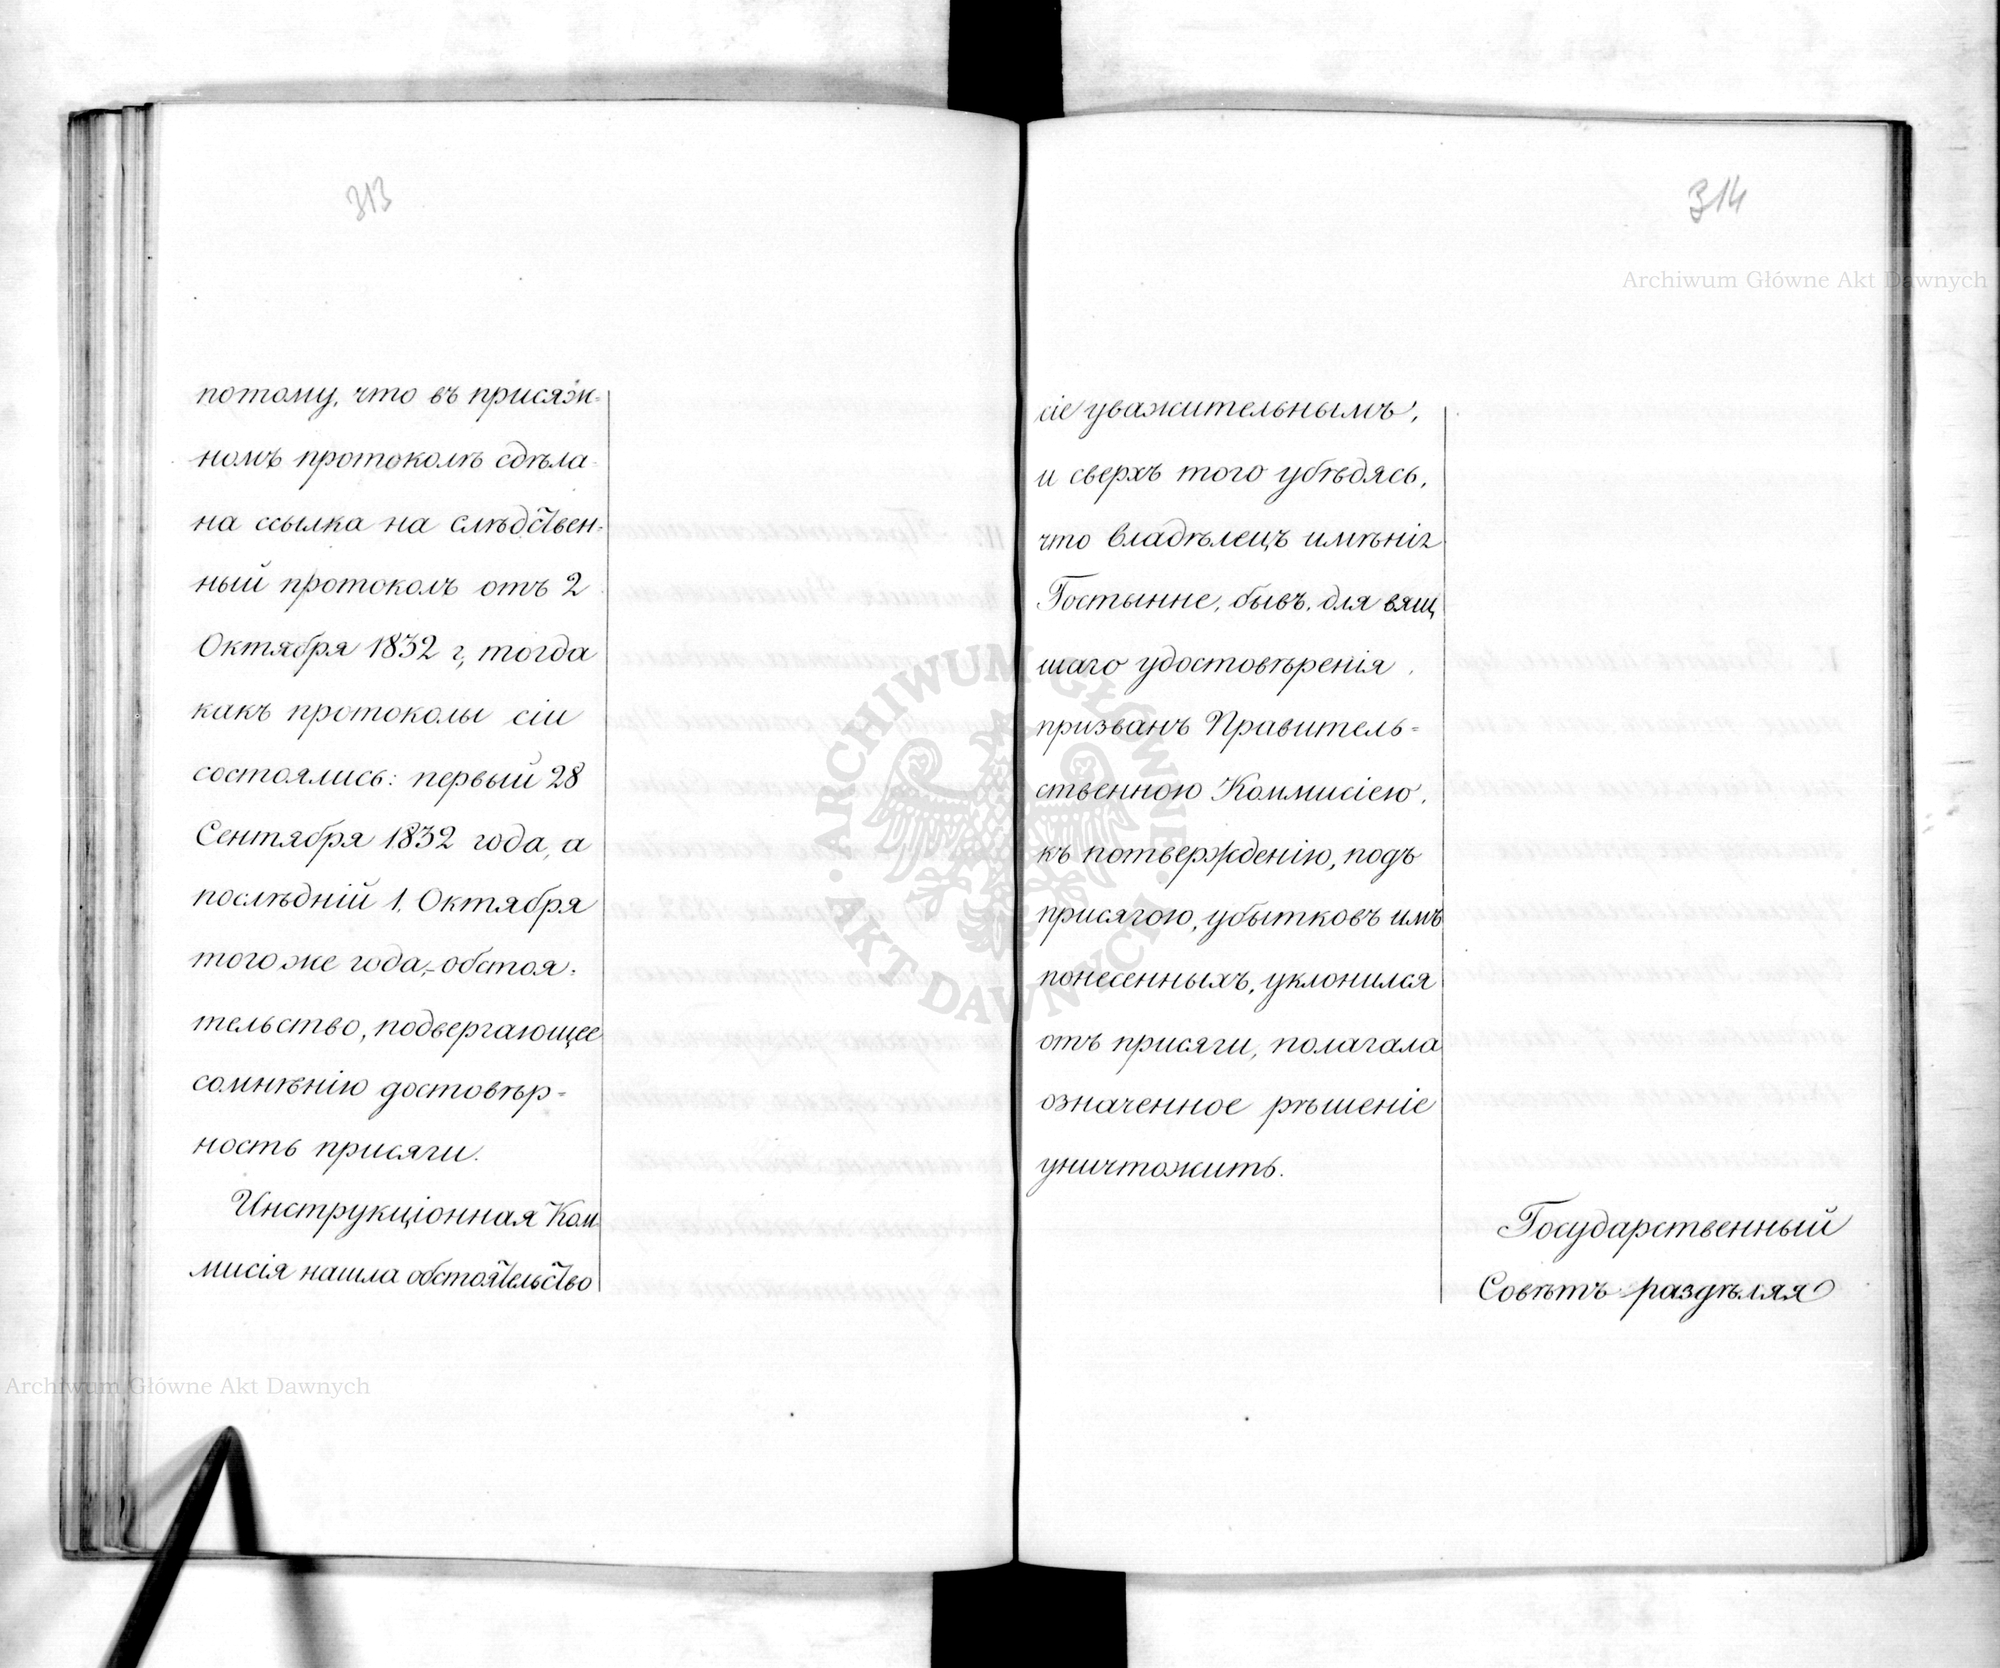 313
потому, что въ присяж-
номъ протоколѣ сдѣла-
на ссылка на слѣдствен-
ный протоколъ отъ 2
Октября 1832 г, тогда
какъ протоколы сіи
состоялись: первый 28
Сентября 1832 года, а
послѣдній 1. Октября
того же года, - обстоя-
тельство, подвергающее
сомнѣнію достовѣр-
ность присяги.
Инструкціонная Ком
мисія нашла обстоятельство
314
сіе уважительнымъ,
и сверхъ того убѣдясь,
что владѣлецъ имѣнія
Гостынне, бывъ, для вящ
шаго удостовѣренія,
призванъ Правитель-
ственною Коммисіею,
къ потвержденію, подъ
присягою, убытковъ имъ
понесенныхъ, уклонился
отъ присяги, полагала
означенное рѣшеніе
уничтожить.
Государственный
Совѣтъ раздѣляя
Archiwum Główne Akt Dawnych
Archiwum Główne Akt Dawnych
ARCHIWUM GŁÓWNE · AKT DAWNYCH ·